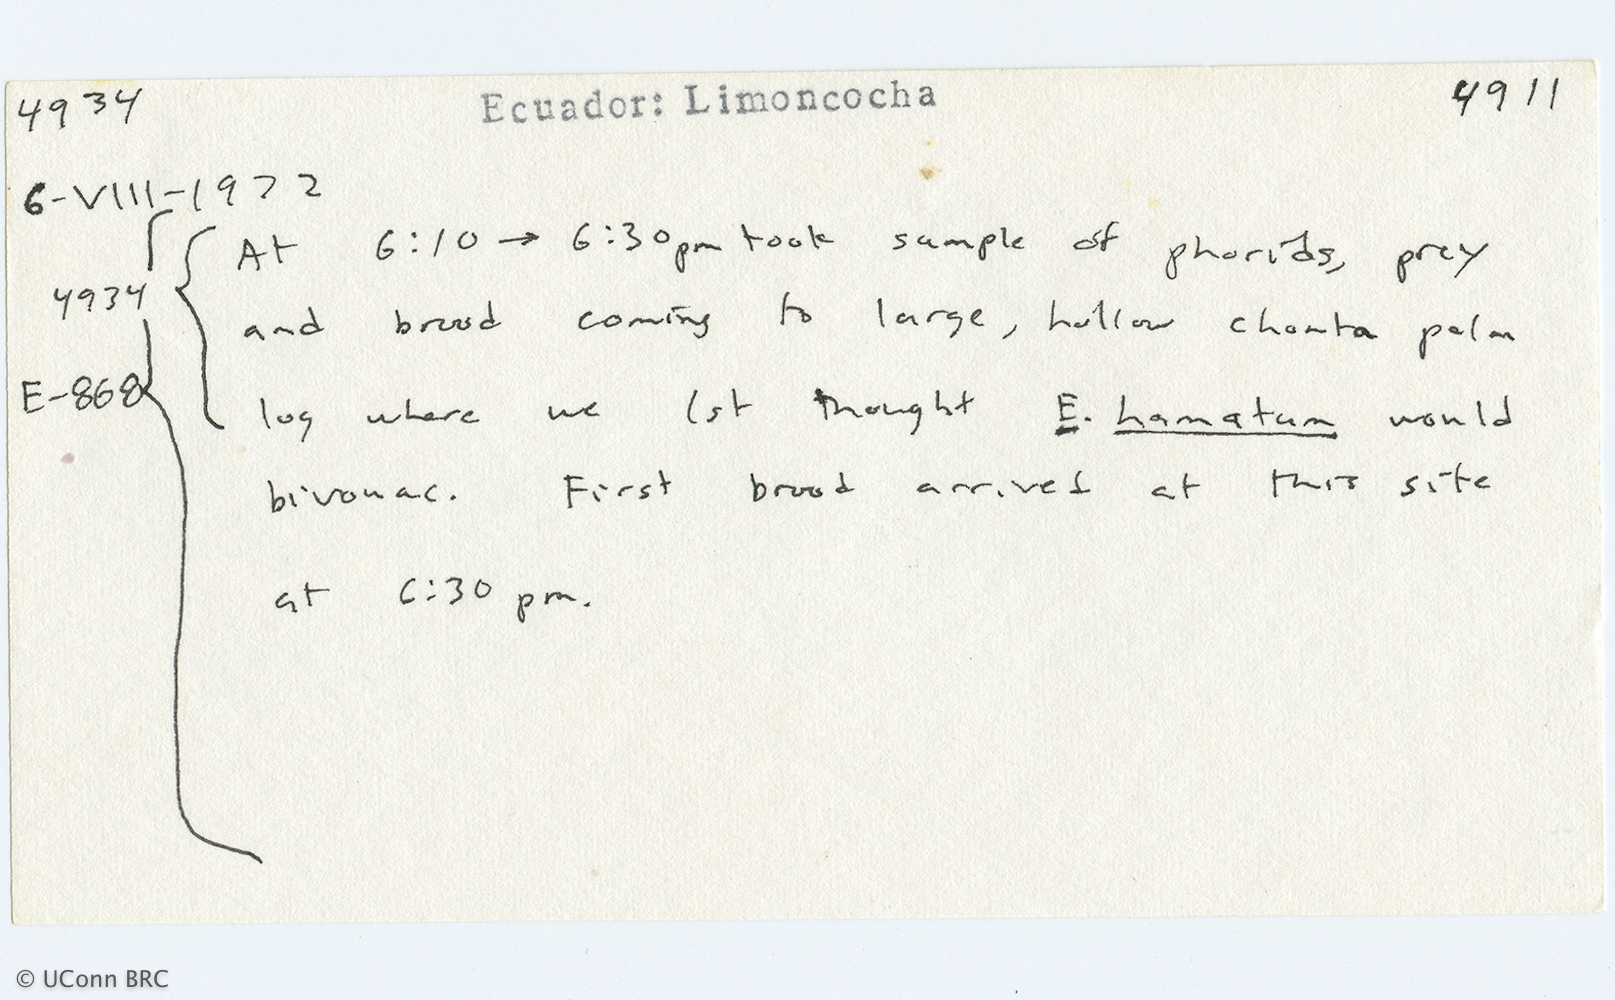 4934 Ecuador: Limoncocha 4911
6-VIII-1972
At 6:10 → 6:30pm took sample of phorids, prey
4934
and brood coming to large, hollow chonta palm
E-868
log where we 1st thought E. hamatum would
bivouac. First brood arrived at this site
at 6:30 pm.
© UConn BRC